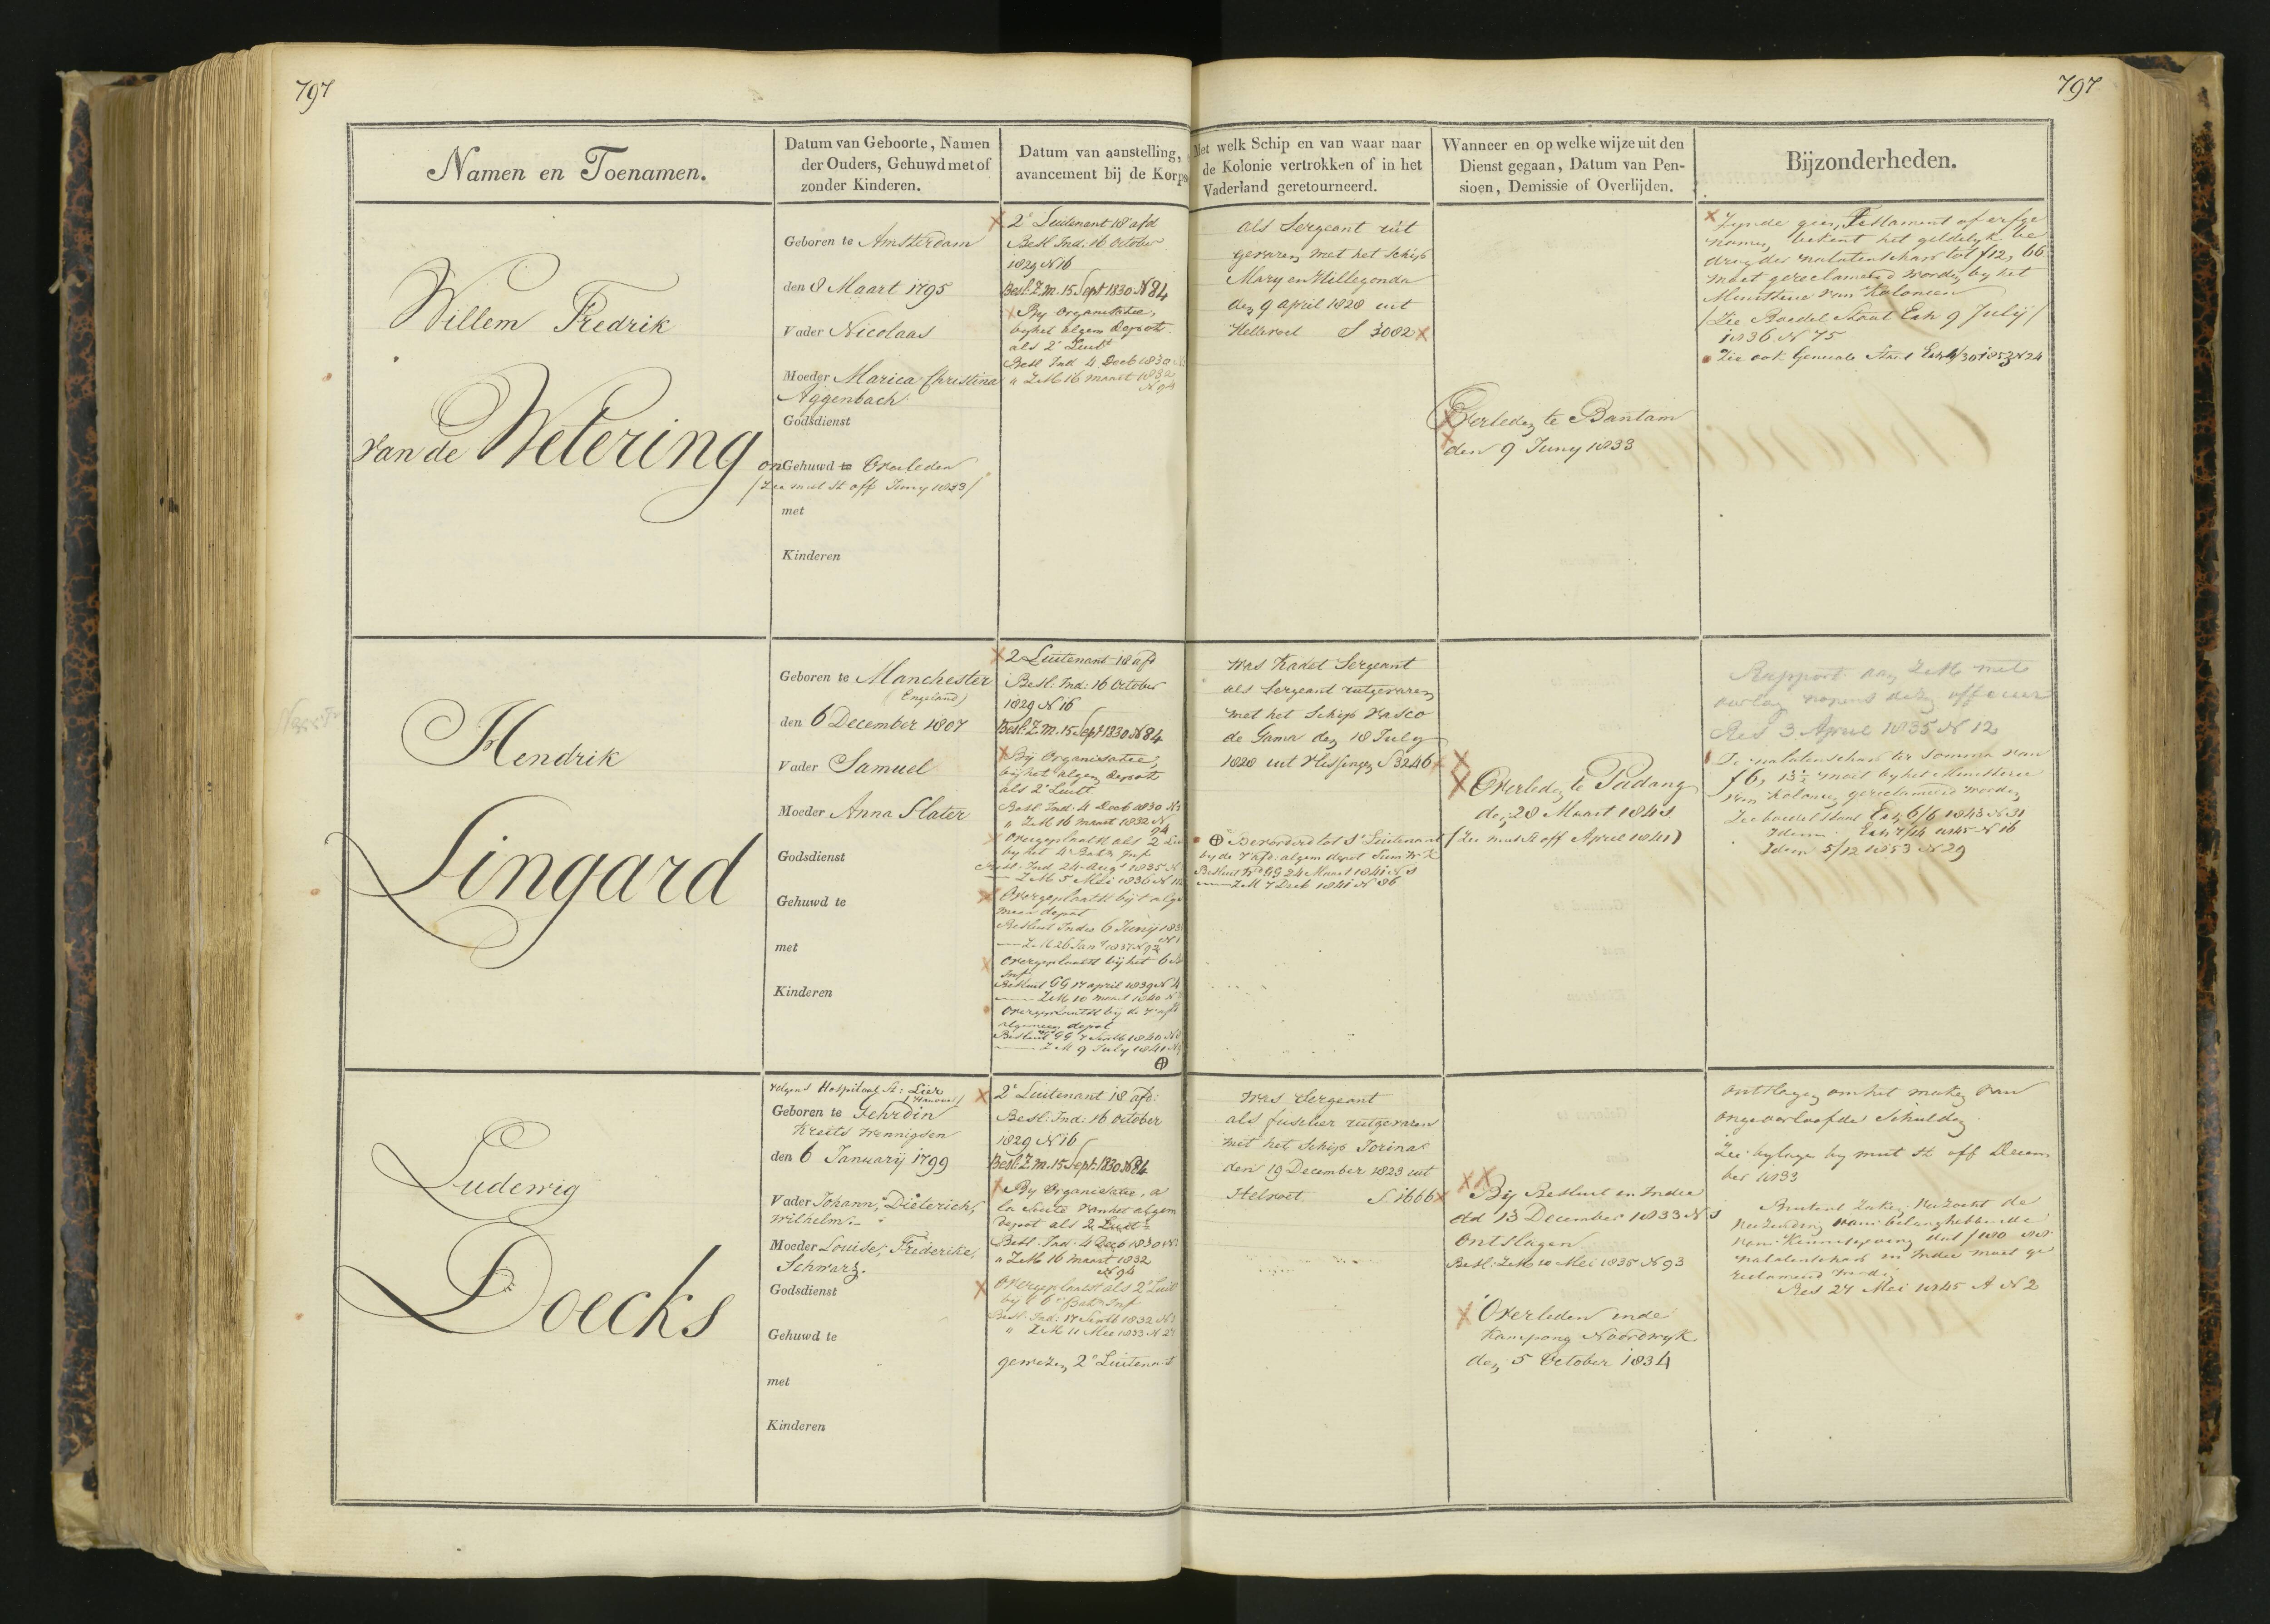 797
797
Namen en Toenamen.
Datum van Geboorte, Namen
der Ouders, Gehuwd met of
zonder Kinderen.
Datum van aanstelling,
avancement bij de Korps
Met welk Schip en van waar naar
de Kolonie vertrokken of in het
Vaderland geretourneerd.
Wanneer en op welke wijze uit den
Dienst gegaan, Datum van Pen-
sioen, Demissie of Overlijden.
Bijzonderheden.
Willem Fredrik
van de Wetering
Geboren te Amsterdam
den 8 Maart 1795
Vader Nicolaas
Moeder Marica Christina
Aggenbach
Godsdienst
onGehuwd te Overleden
/Zie mut st off Juny 1833/
met
Kinderen
2e Luitenant 18e afd
Besl Ind: 16 October
1829 N 16
Besl. Z.M. 15 Sept 1830 N 84
By Organisatie,
by het algem depot
als 2e Luit
Besl Ind 4 Decb 1830
" ZM 16 maart 1832
N 94
als Sergeant uit
gevaren met het schip
Mary en Hillegonda
den 9 april 1828 uit
Hellevoet S 3082
Overleden te Bantam
den 9 Juny 1833
Zynde geen Testament of erfge
namen bekent het geldelyk be
drag der nalatenschap tot f12,66
moet gereclameerd worden by het
Ministerie van Kolonien
/Zie Boedel Staat Exh 9 July/
1836 N 75
Zie ook Generale Staat Exh 30 1853 N 24
Hendrik
Lingard
Geboren te Manchester
(Engeland)
den 6 December 1807
Vader Samuel
Moeder Anna Slater
Godsdienst
Gehuwd te
met
Kinderen
2 Luitenant 18 afd
Besl: Ind: 16 October
1829 N 16
Besl. Z.M. 15 Sept 1830 N 84
Bij Organisatie,
bij het algem depot
als 2e Luit
Besl. Ind. 4 Decb 1830 N
" ZM 16 maart 1832 N
94
Overgeplaatst als 2 Lui
by het 4 Batn Inf
Besl. Ind 24 Aug 1835 N
ZM 5 Mei 1836 N
Overgeplaatst bij t alge
meen depot
Besluit Indie 6 Junij 183
ZM 26 Jan 1837 N 92
Overgeplaatst bij het 6
Inf
Besluit GG 17 april 1839 N 4
ZM 10 maart 1840 N
Overgeplaatst bij de 7e afd
algemeen depot
Besluit GG 7 1840 N
ZM 9 July 1841 N
⊕
was Kadet Sergeant
als Sergeant uitgevaren
met het Schip Vasco
de Gama den 18 July
1828 uit Vlissingen S 3246
⊕ Bevorderd tot 1e Luitenant
by de 7 afd. algem depot
Besluit GG 24 Maart 1841 N
ZM 7 Decb 1841 N 86
Overleden te Padang
den 28 Maart 1841
(Zie mut st off April 1841)
Rapport aan ZM met
overleg nopens dezen officier
Res 3 April 1835 N 12
De nalatenschap ter somma van
f6, 13½ moet by het Ministerie
van Kolonien gereclameerd worden
Zie boedel Staat Exh 6/6 1843 N 31
Idem Exh 1845 N 16
Idem 5/12 1853 N 29
Ludewig
Doecks
volgens Hospitaal St: Lier
/Hanover/
Geboren te Gehrdin
Kreits Wennigsen
den 6 Januarij 1799
Vader Johann, Dieterich,
Wilhelm.
Moeder Louise, Frederike,
Schwarz.
Godsdienst
Gehuwd te
met
Kinderen
2e Luitenant 18 afd:
Besl: Ind: 16 October
1829 N 16
Besl. Z.M. 15 Sept. 1830 N 84
By Organisatie, a
la Suite van het algem
depot als 2 Luit
Besl. Ind. 4 Decb 1830 N
" ZM 16 maart 1832
N 94
Overgeplaatst als 2e Luit
by t 6e Batn Inf
Besl. Ind: 17 1832 N
" ZM 11 Mei 1833 N 27
gewezen 2e Luitenant
was Sergeant
als fuselier uitgevaren
met het Schip Corinas
den 19 December 1823 uit
Helvoet S 1666
Bij Besluit en Indie
dd 13 December 1833 N 1
Ontslagen
Besl: ZM 10 Mei 1835 N 93
Overleden inde
Kampong Noordwyk
den 5 October 1834
ontslagen om het maken van
ongeoorloofde schulden
Zie bylage by mut st off Decem
ber 1833
nalatenschap en Indie moet ge
reclameerd worden
Res 27 Mei 1845 A N 2